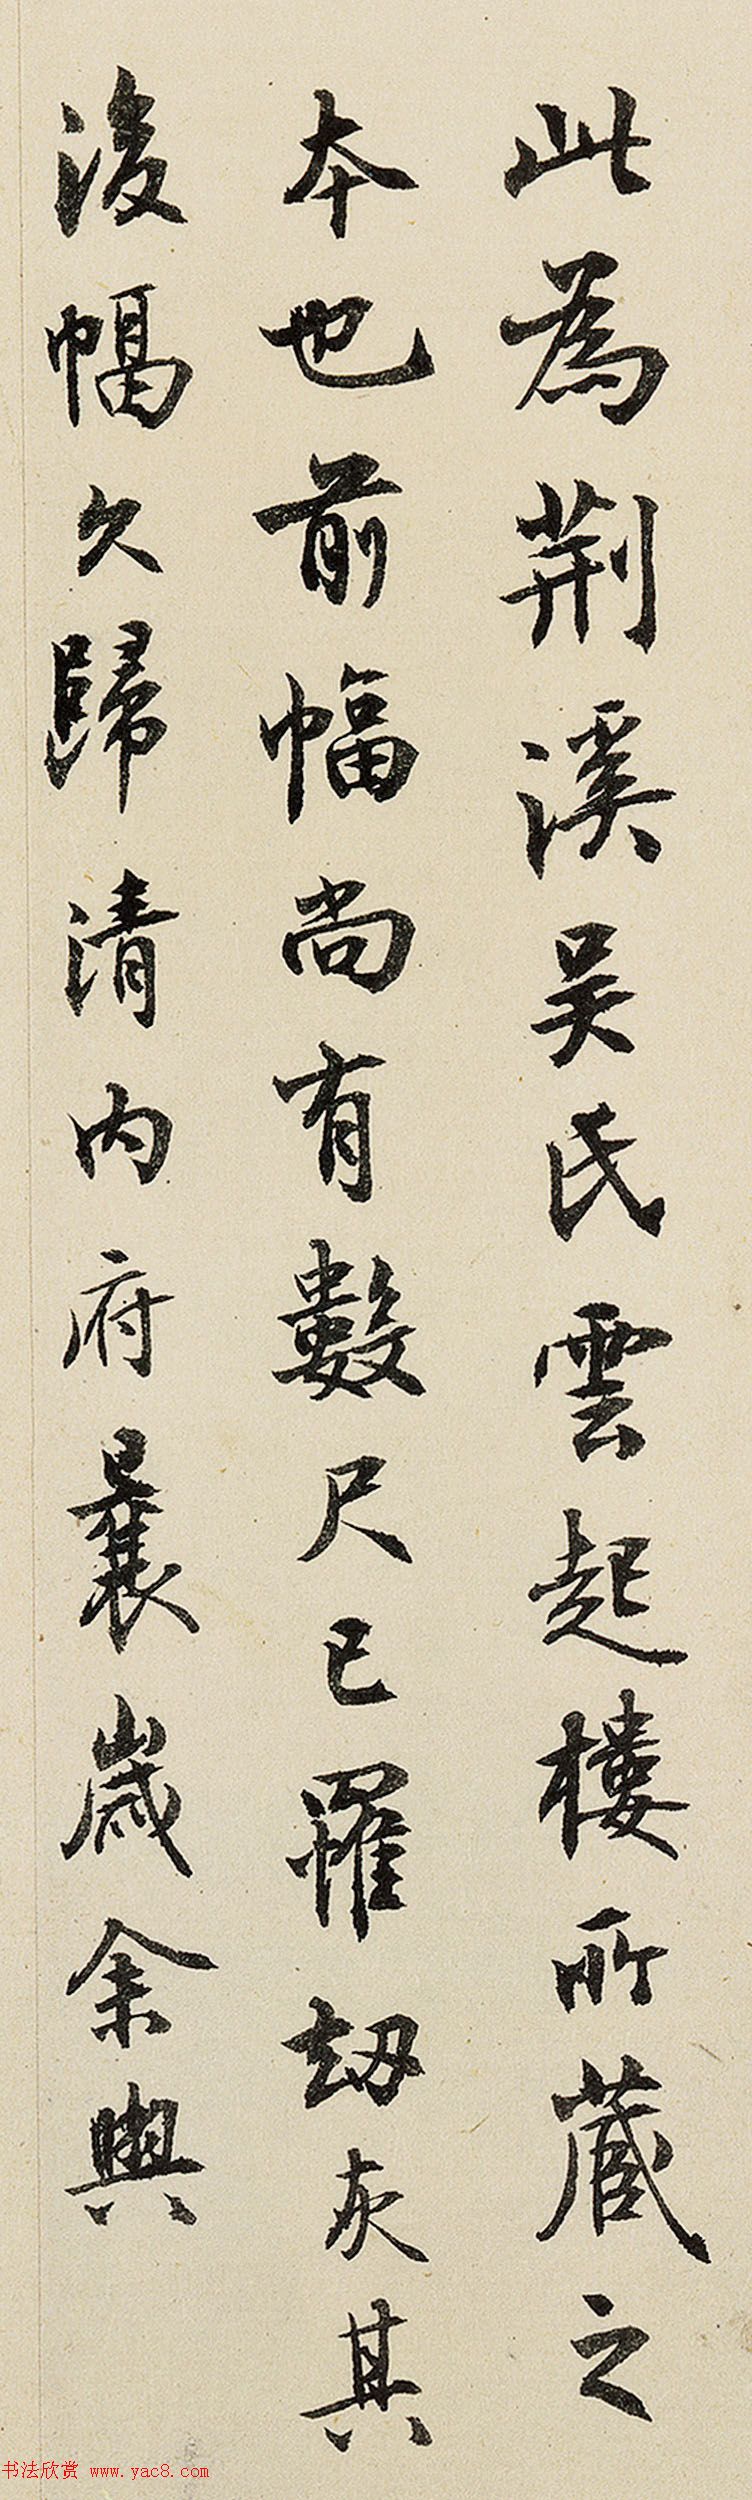 此為荆溪吴氏雲起樓所蔵之
本也前幅尚有數尺已罹劫灰其
後幅久歸清内府曩歲余與
书法欣赏 www.yac8.com